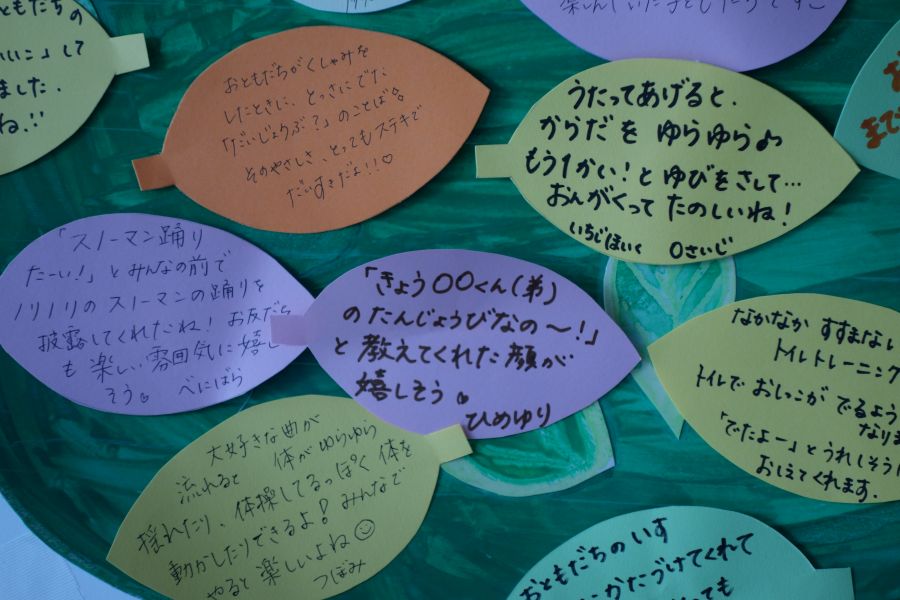 ともだちの
いいこ」して
ました.
ね.!!
おともだちがくしゃみを
したときに、とっさにでた
「だいじょうぶ?」のことば
そのやさしさ、とってもステキで
だいすきだよ!!♡
うたってあげると、
からだを ゆらゆら♪
もう1かい!とゆびをさして…
おんがくって たのしいね!
いちじほいく 0さいじ
まで
「スノーマン踊り
たーい!」とみんなの前で
ノリノリのスノーマンの踊りを
披露してくれたね!お友だち
も楽しい雰囲気に嬉し
そう。 べにばら
「きょう〇〇くん(弟)
のたんじょうびなの〜!」
と教えてくれた顔が
嬉しそう。
ひめゆり
なかなか すすまない
トイレトレーニング
トイレで おしっこが でるよう
なりま
「でたよー」とうれしそうに
おしえてくれます.
大好きな曲が
流れると 体がゆらゆら
揺れたり、体操してるっぽく 体を
動かしたりできるよ!みんなで
やると楽しいよね☺
つぼみ
おともだちのいす
かたづけてくれて
とっても